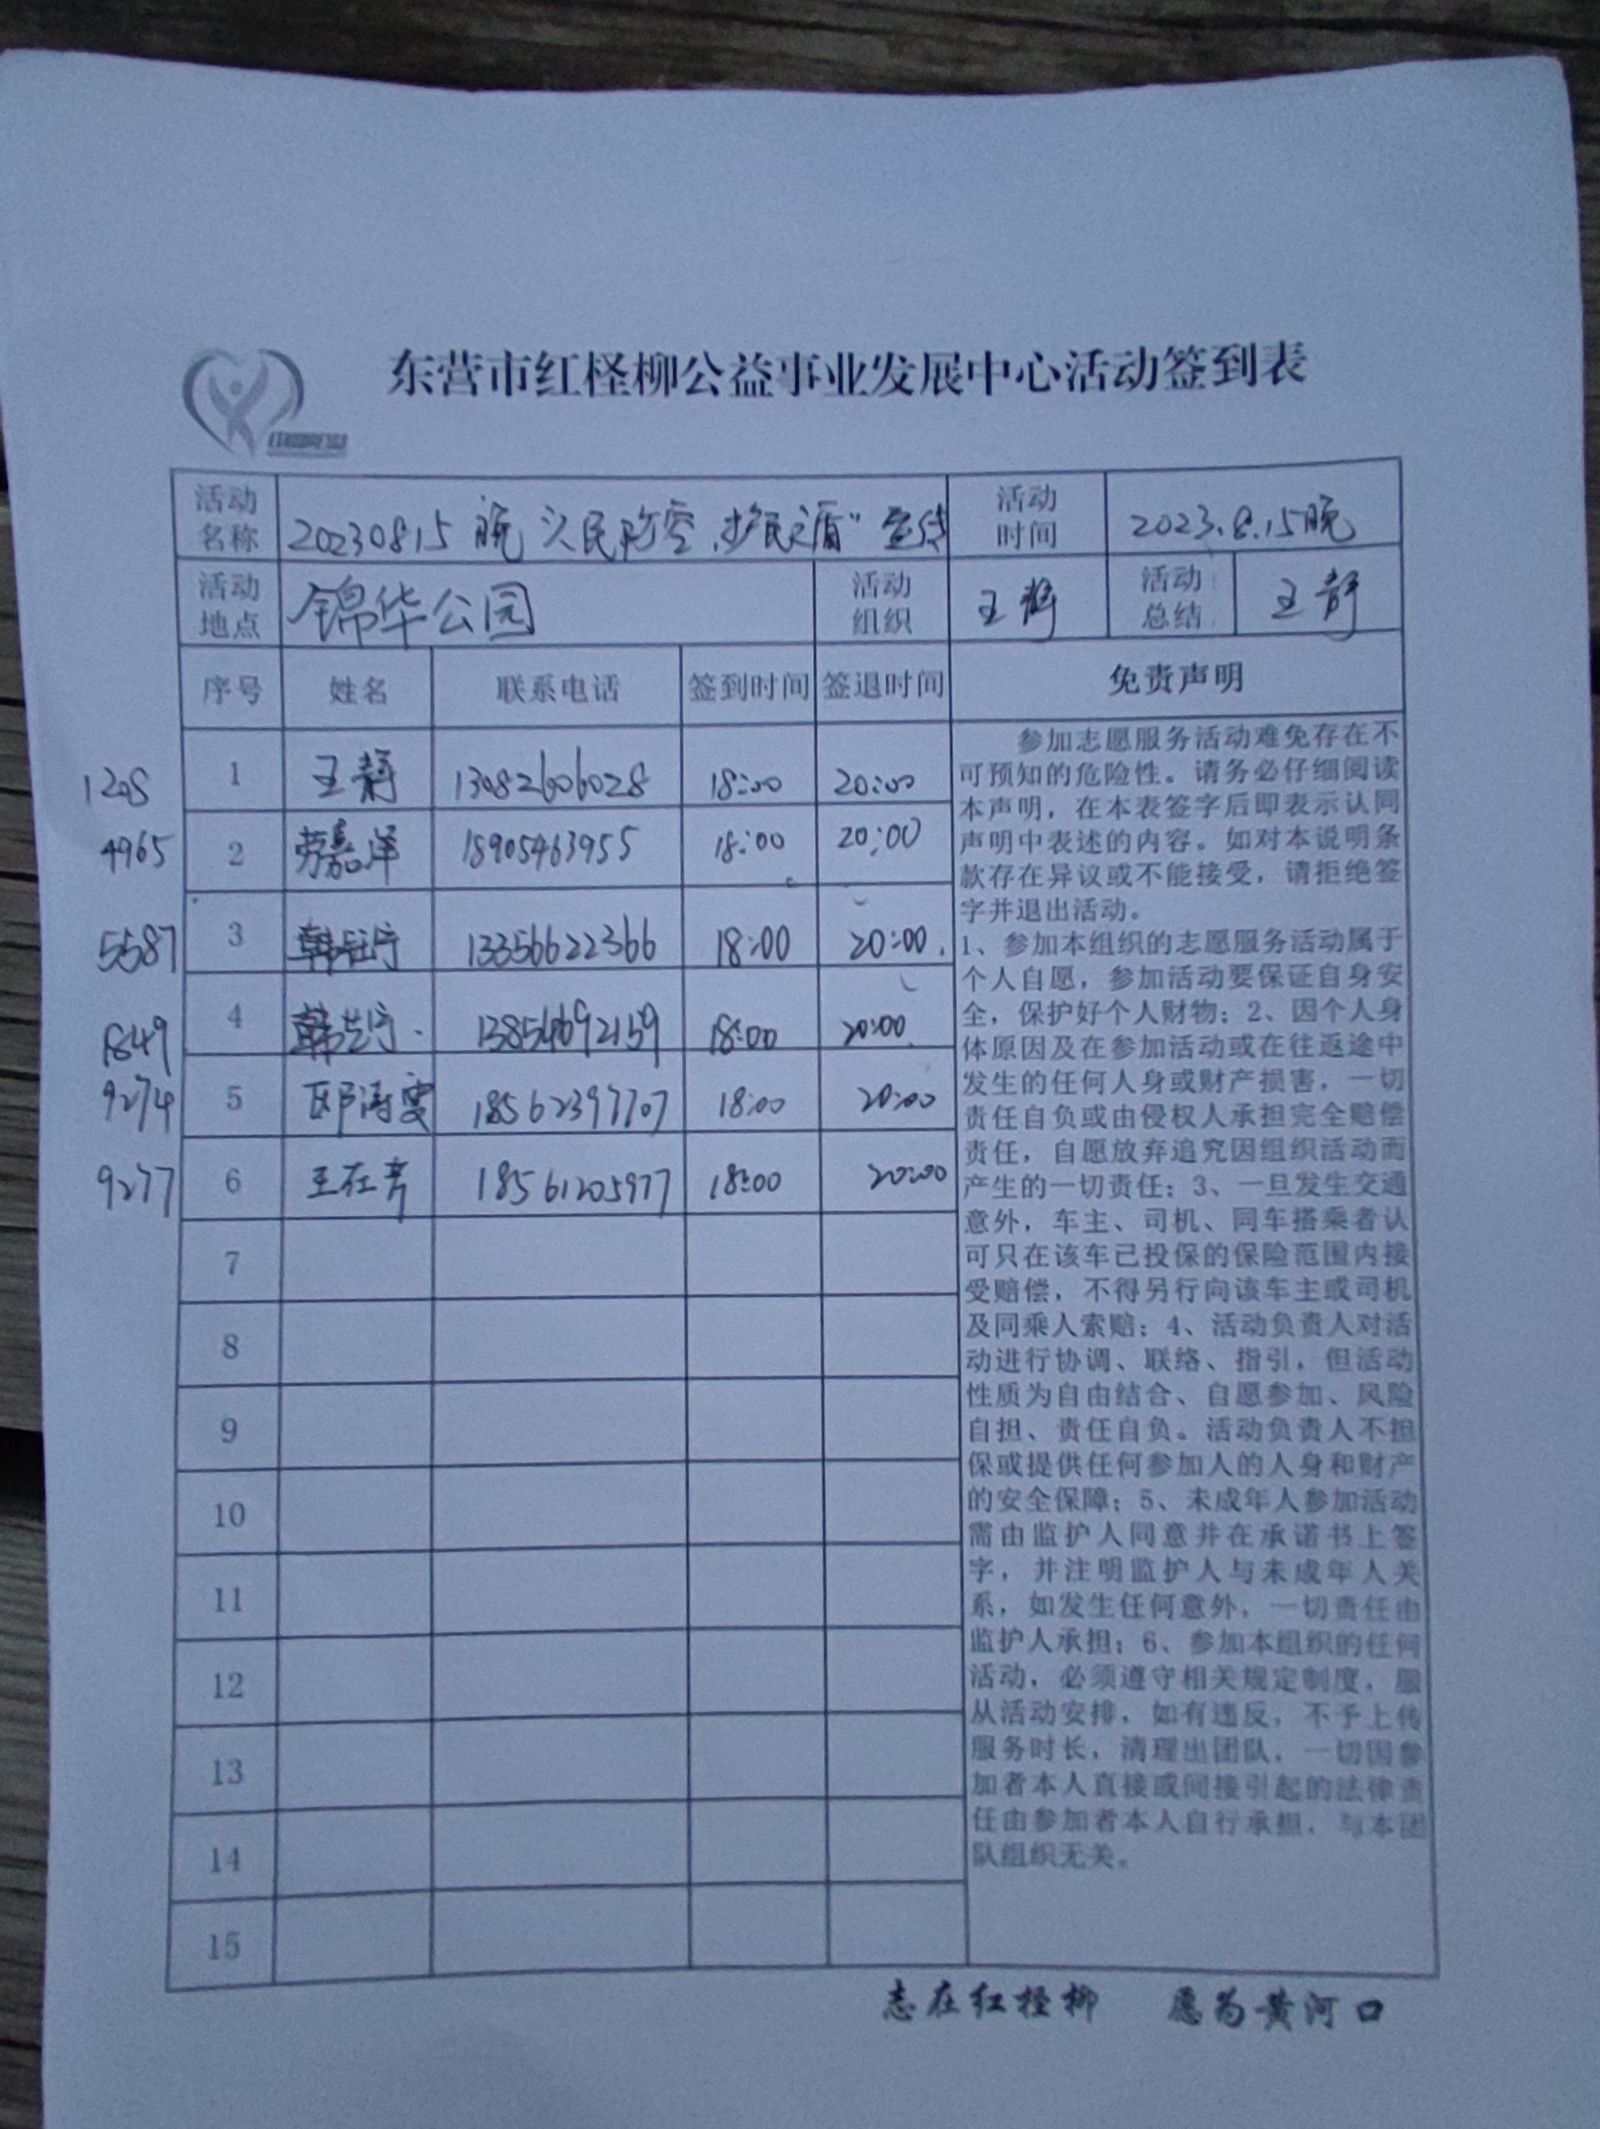 东营市红柽柳公益事业发展中心活动签到表
活动名称 20230815 晚 "人民防空,护民之盾" 宣传 活动时间 2023.8.15晚
活动地点 锦华公园 活动组织 王静 活动总结 王静
序号 姓名 联系电话 签到时间 签退时间 免责声明
1208 1 王静 13082606028 18:00 20:00
4965 2 劳嘉泽 18905463955 18:00 20:00
5587 3 韩 宁 13356622366 18:00 20:00.
1849 4 韩 宁. 13854692159 18:00 20:00.
9274 5 邱涛雯 18562397707 18:00 20:00
9277 6 王在芳 18561205977 18:00 20:00
7
8
9
10
11
12
13
14
15
参加志愿服务活动难免存在不
可预知的危险性。请务必仔细阅读
本声明，在本表签字后即表示认同
声明中表述的内容。如对本说明条
款存在异议或不能接受，请拒绝签
字并退出活动。
1、参加本组织的志愿服务活动属于
个人自愿，参加活动要保证自身安
全，保护好个人财物；2、因个人身
体原因及在参加活动或在往返途中
发生的任何人身或财产损害，一切
责任自负或由侵权人承担完全赔偿
责任，自愿放弃追究因组织活动而
产生的一切责任；3、一旦发生交通
意外，车主、司机、同车搭乘者认
可只在该车已投保的保险范围内接
受赔偿，不得另行向该车主或司机
及同乘人索赔；4、活动负责人对活
动进行协调、联络、指引，但活动
性质为自由结合、自愿参加、风险
自担、责任自负。活动负责人不担
保或提供任何参加人的人身和财产
的安全保障；5、未成年人参加活动
需由监护人同意并在承诺书上签
字，并注明监护人与未成年人关
系，如发生任何意外，一切责任由
监护人承担；6、参加本组织的任何
活动，必须遵守相关规定制度，服
从活动安排，如有违反，不予上传
服务时长，清理出团队，一切因参
加者本人直接或间接引起的法律责
任由参加者本人自行承担，与本团
队组织无关。
志在红柽柳 愿为黄河口